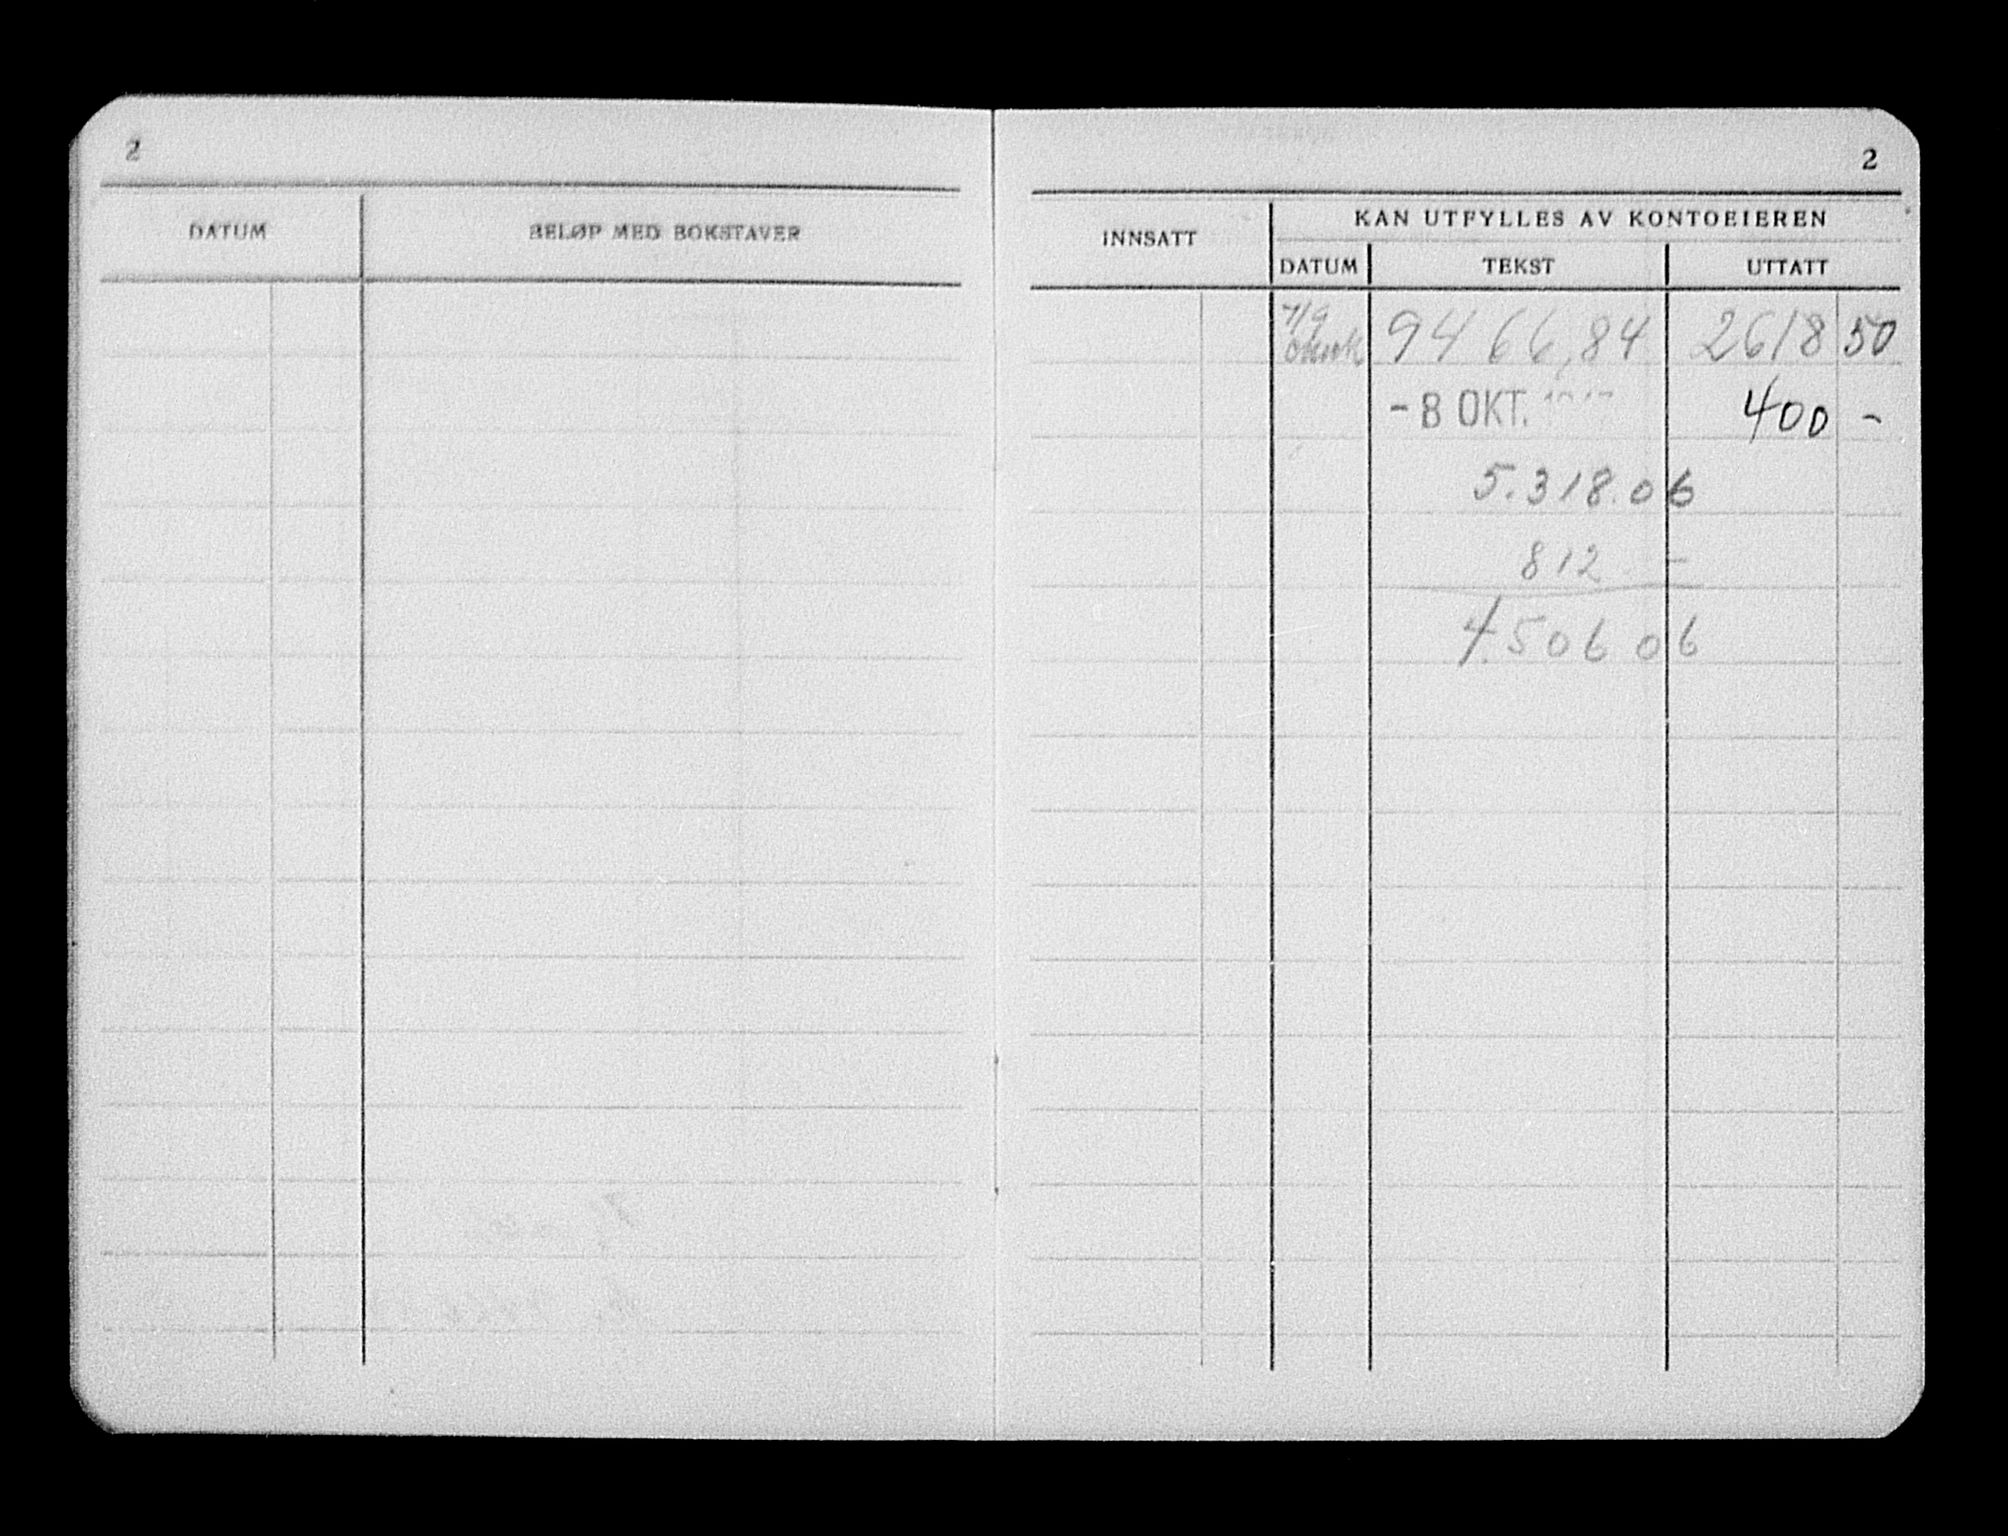 2
DATUM BELØP MED BOKSTAVER
2
INNSATT KAN UTFYLLES AV KONTOEIEREN
DATUM TEKST UTTATT
7/9 9466,84 2618 50
- 8 OKT. 400 -
5.318.06
812 -
4.506 06